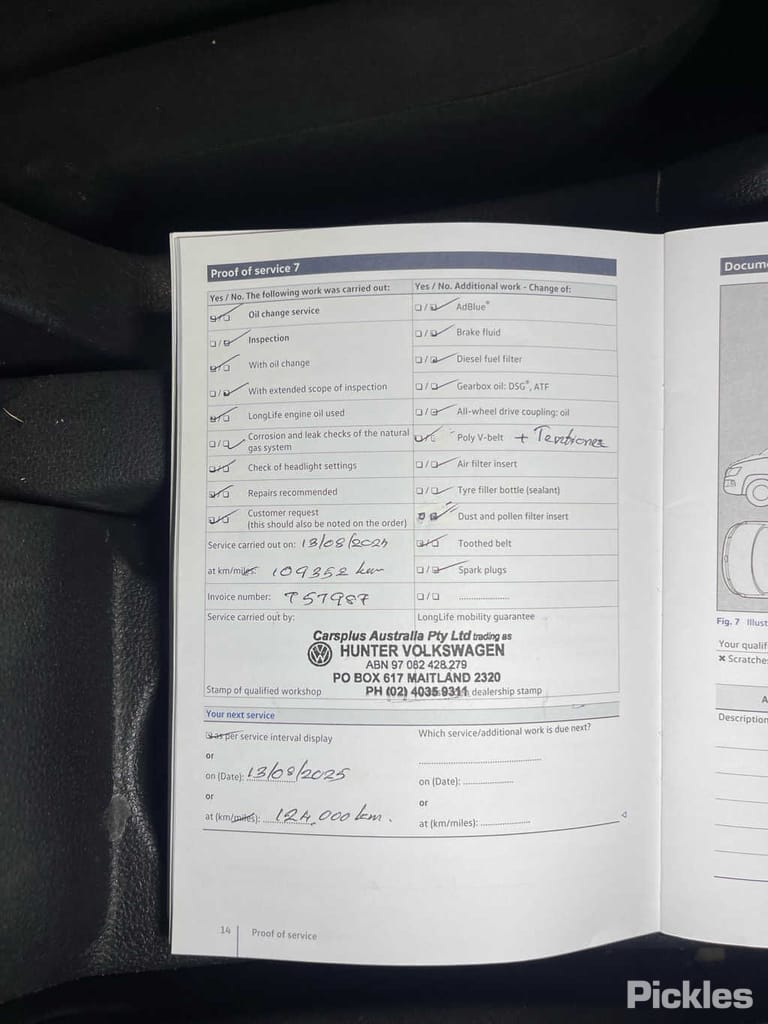 Proof of service 7
Docum
Yes / No. The following work was carried out:
Oil change service
Inspection
With oil change
With extended scope of inspection
LongLife engine oil used
Corrosion and leak checks of the natural
gas system
Check of headlight settings
Repairs recommended
Customer request
(this should also be noted on the order)
Service carried out on: 13/08/2025
at km/miles: 109352 km
Invoice number: T57987
Service carried out by:
Yes / No. Additional work - Change of:
AdBlue®
Brake fluid
Diesel fuel filter
Gearbox oil: DSG®, ATF
All-wheel drive coupling: oil
Poly V-belt + Tentionez
Air filter insert
Tyre filler bottle (sealant)
Dust and pollen filter insert
Toothed belt
Spark plugs
LongLife mobility guarantee
Carsplus Australia Pty Ltd trading as
HUNTER VOLKSWAGEN
ABN 97 082 428 279
PO BOX 617 MAITLAND 2320
PH (02) 4035 9311
Stamp of qualified workshop
dealership stamp
Your next service
as per service interval display
or
on (Date): 13/08/2025
or
at (km/miles): 124,000 km.
Which service/additional work is due next?
on (Date):
or
at (km/miles):
14 Proof of service
Fig. 7 Illust
Your qualif
× Scratche
A
Description
Pickles